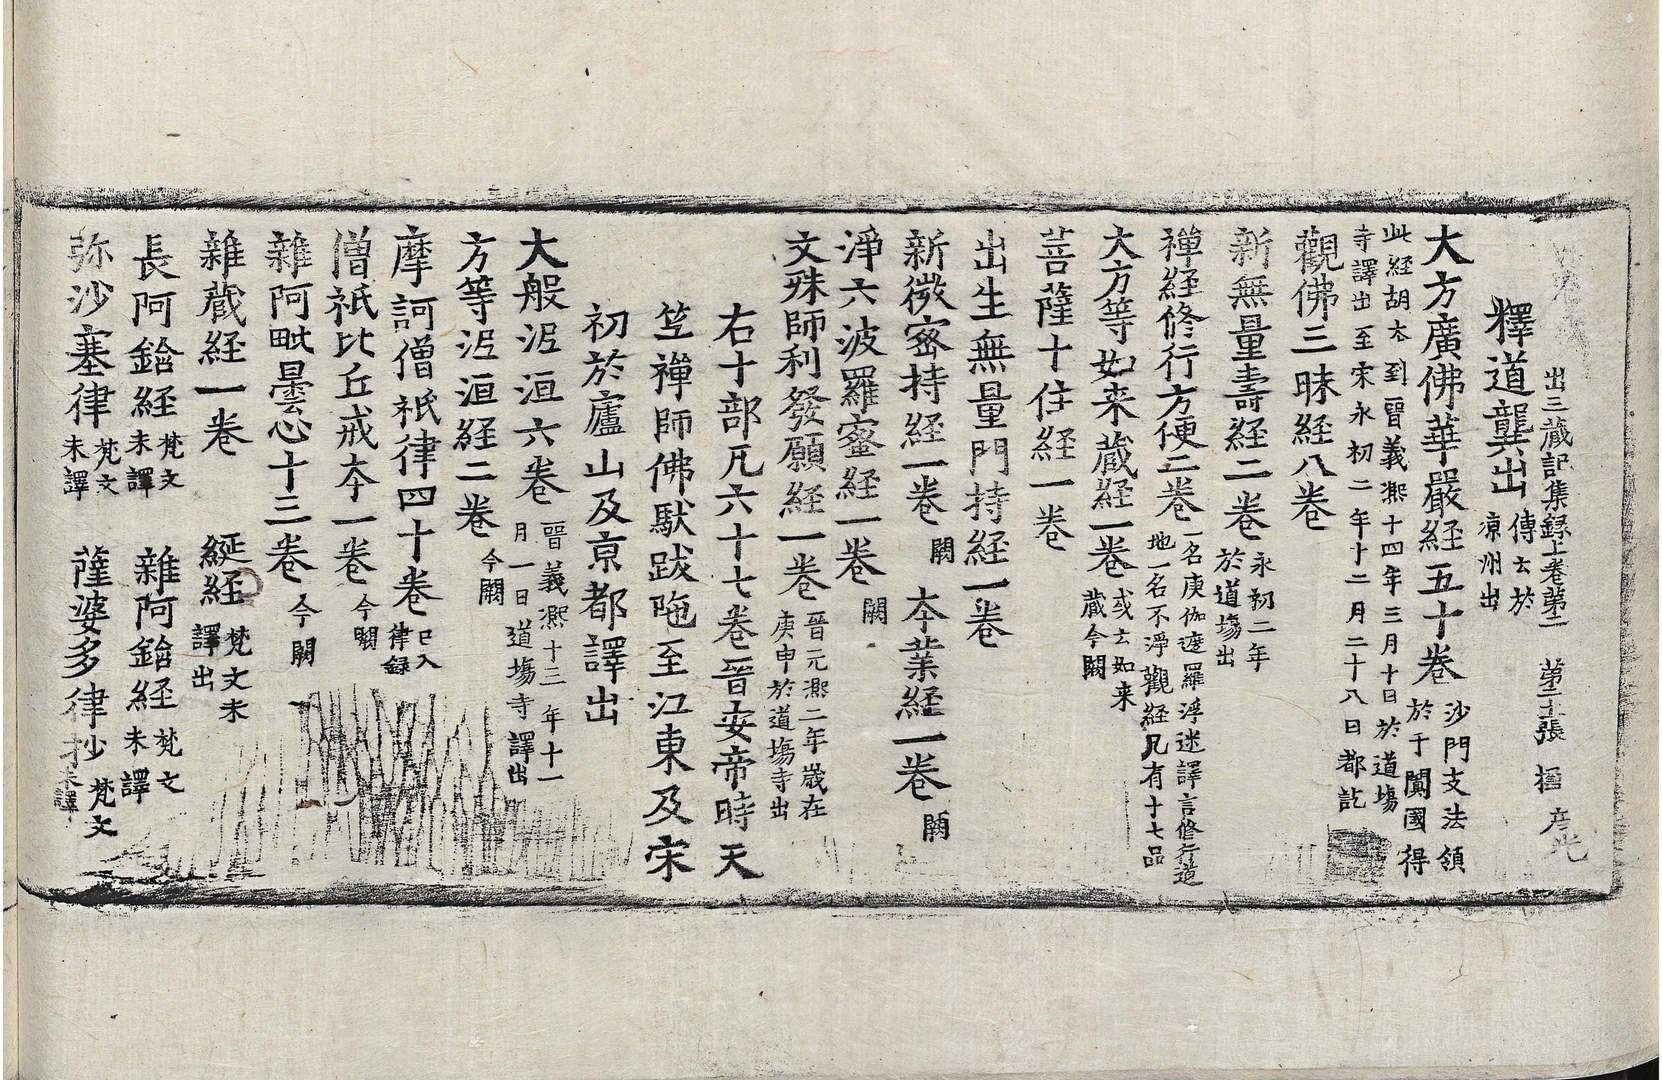 出三藏記集録上卷苐二 苐二十張 彦光
釋道龔出 傳云於涼州出
大方廣佛華嚴経五十卷 沙門支法領於于闐國得
此経胡夲到晋義熙十四年三月十日於道塲
寺譯出至宋永初二年十二月二十八日都訖
觀佛三昧経八卷
新無量壽経二卷 永初二年於道塲出
禪経修行方便二卷 一名庚伽遮羅浮迷譯言修行道地一名不淨觀経凡有十七品
大方等如来藏経一卷 或云如来藏今闕
菩薩十住経一卷
出生無量門持経一卷
新微密持経一卷 闕 夲業経一卷 闕
淨六波羅蜜経一卷 闕
文殊師利發願経一卷 晋元熙二年歲在庚申於道塲寺出
右十部凡六十七卷晋安帝時天
竺禪師佛馱跋陁至江東及宋
初於廬山及京都譯出
大般泥洹六卷 晋義熙十三年十一月一日道塲寺譯出
方等泥洹経二卷 今闕
摩訶僧祇律四十卷 已入律録
僧祇比丘戒夲一卷 今闕
雜阿毗曇心十三卷 今闕
雜藏経一卷 綖経 梵文未譯出
長阿鋡経 梵文未譯 雜阿鋡経 梵文未譯
弥沙塞律 梵文未譯 薩婆多律抄 梵文未譯